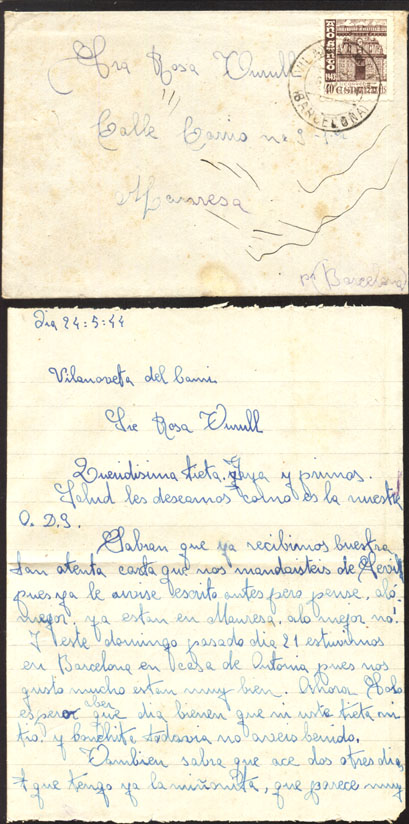 Sra Rosa Vinull
Calle Carrio no 9
Manresa
(Barcelona)
AÑO SANTO
1943
40 cts
ESPAÑA
BARCELONA
Dia 24:5:44
Vilanoveta del Cami
Sre Rosa Vinull
Queridisima tieta. Yaya y primos.
Salud les deseamos como es la nuestra
O. D. G.
Sabran que ya recibimos buestra
tan atenta carta que nos mandasteis de
pues ya le uvise escrito antes pero pense, alo-
mejor ya estan en Manresa, alo mejor no!
I este domingo pasado dia 21 estuvimos
en Barcelona en casa de Antonia pues nos
gusto mucho estan muy bien. Ahora solo
espero aber que dia bienen que ni uste tieta ni
tio y conchita todavia no aveis benido.
Tambien sabra que ace dos o tres dias
que tengo ya la, que parece muy